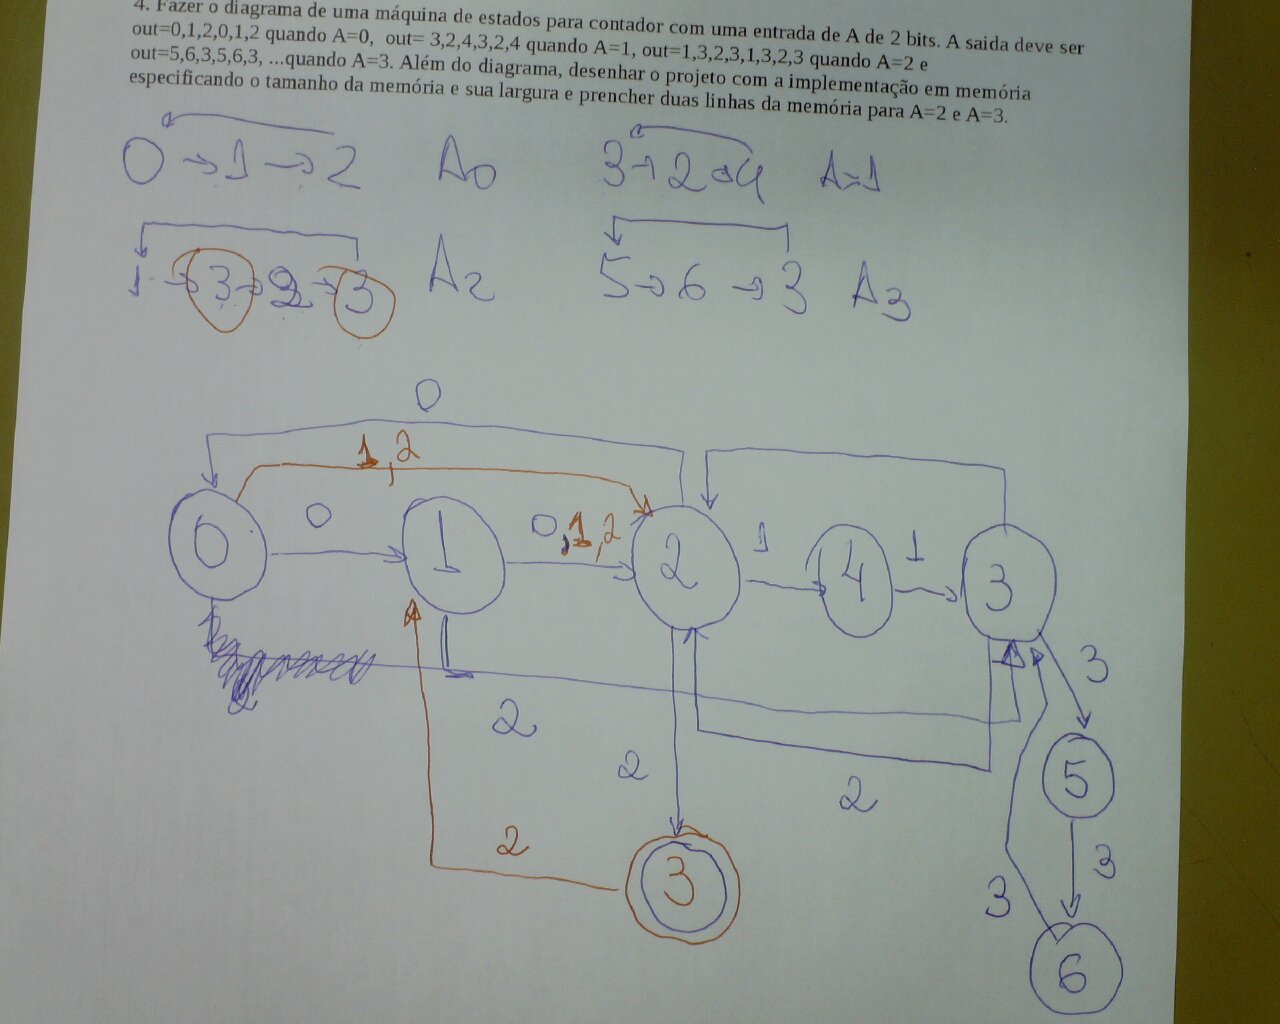 4. Fazer o diagrama de uma máquina de estados para contador com uma entrada de A de 2 bits. A saida deve ser
out=0,1,2,0,1,2 quando A=0, out= 3,2,4,3,2,4 quando A=1, out=1,3,2,3,1,3,2,3 quando A=2 e
out=5,6,3,5,6,3, ...quando A=3. Além do diagrama, desenhar o projeto com a implementação em memória
especificando o tamanho da memória e sua largura e prencher duas linhas da memória para A=2 e A=3.
0 → 1 → 2 A0 3 → 2 → 4 A=1
1 → 3 → 2 → 3 A2 5 → 6 → 3 A3
0
1,2
0 0 1 0,1,2 2 1 4 1 3
3
2 2 2 5
2 3 3 3
6